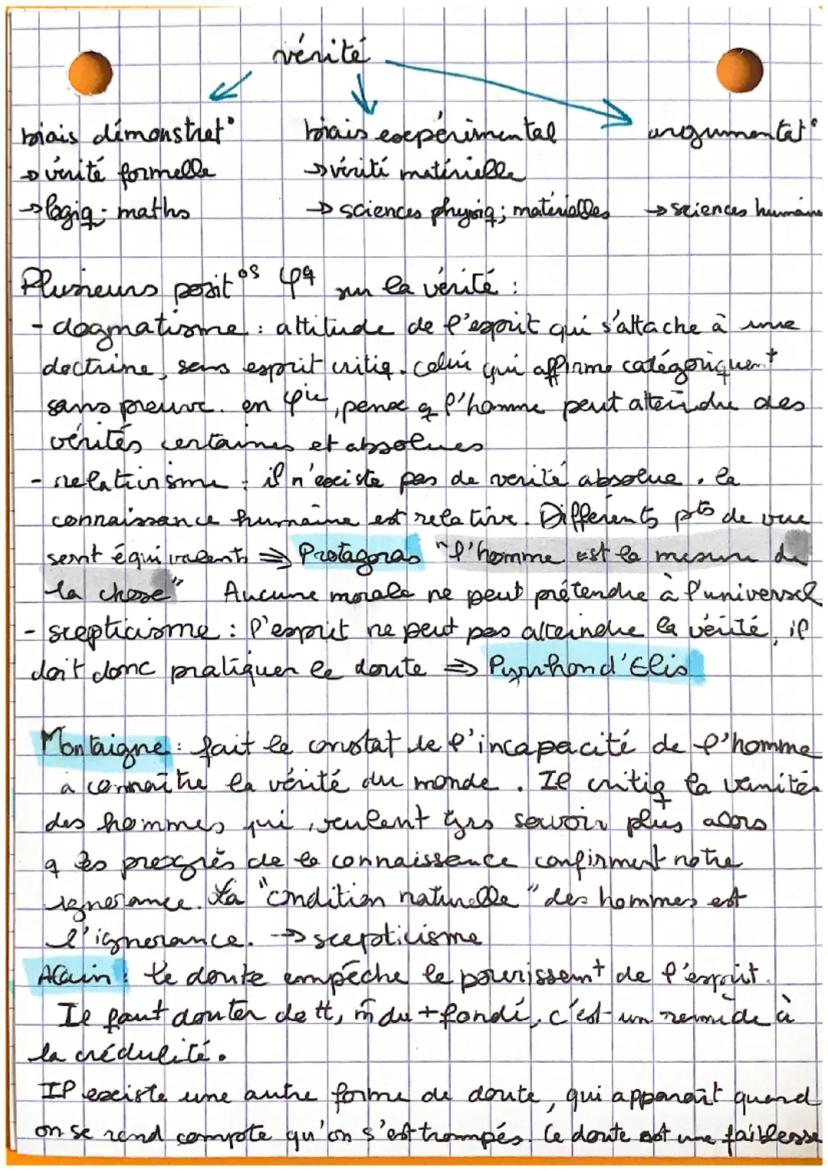 vérité
biais démonstrat° biais expérimental argumentat°
→ vérité formelle → vérité matérielle
→ logiq; maths → sciences physiq; matérielles → sciences humaine
Plusieurs posit°s φq sur la vérité :
- dogmatisme : attitude de l'esprit qui s'attache à une
doctrine, sans esprit critiq. Celui qui affirme catégoriquemt
sans preuve. en φie, pense q l'homme peut atteindre des
vérités certaines et absolues
- relativisme : il n'existe pas de verité absolue. la
connaissance humaine est relative. Différents pts de vue
sont équivalents ⇒ Protagoras "l'homme est la mesure de
la chose" Aucune morale ne peut prétendre à l'universel
- scepticisme : l'esprit ne peut pas atteindre la vérité, il
doit donc pratiquer le doute ⇒ Pyrrhon d'Elis
Montaigne : fait le constat de l'incapacité de l'homme
à connaître la vérité du monde. Il critiq la vanité
des hommes qui veulent tjrs savoir plus alors
q les progrès de la connaissance confirment notre
ignorance. La "condition naturelle" des hommes est
l'ignorance. → scepticisme
Alain : le doute empêche le pourissemt de l'esprit.
Il faut douter de tt, m̂ du + fondé, c'est un remède à
la crédulité.
Il existe une autre forme de doute, qui apparaît quand
on se rend compte qu'on s'est trompés. Ce doute est une faiblesse